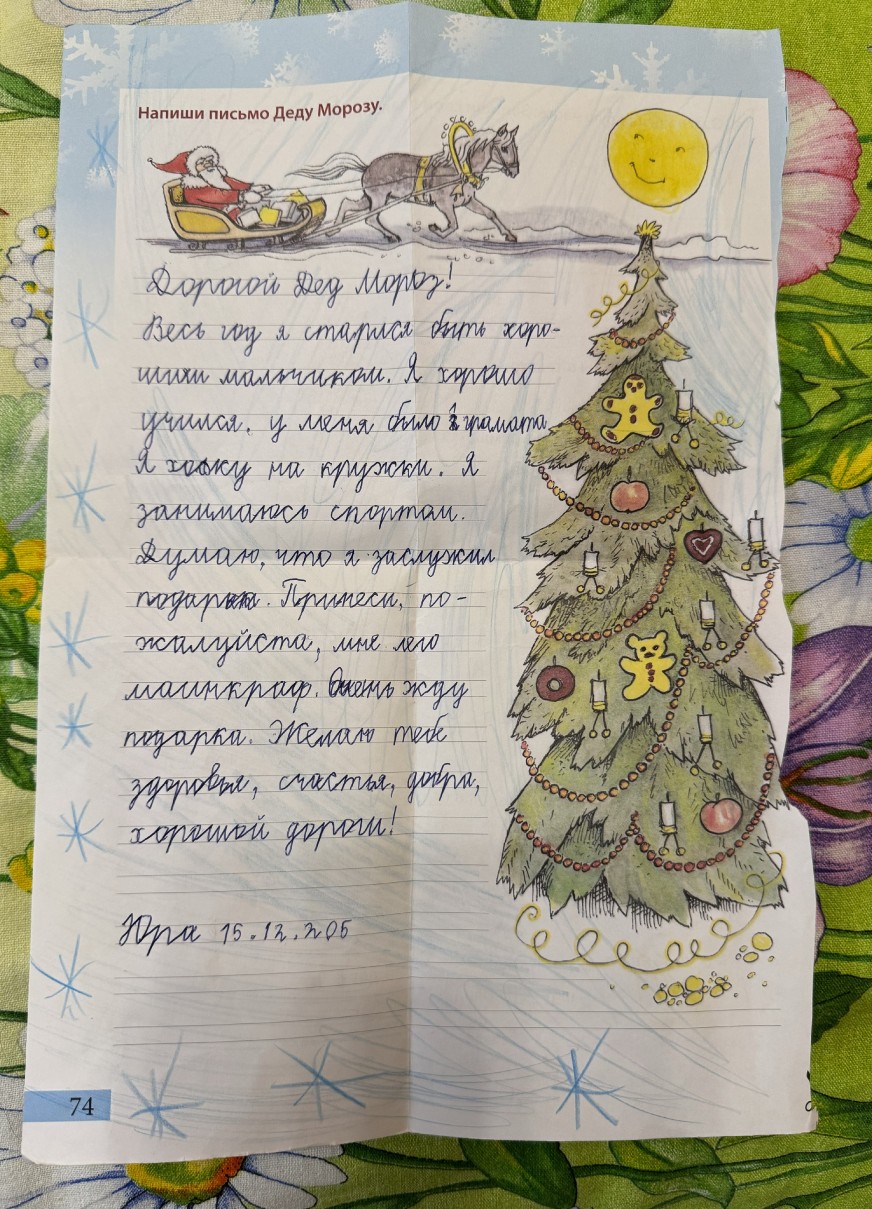 Напиши письмо Деду Морозу.
Дорогой Дед Мороз!
Весь год я старлся быть хоро-
шим мальчиком. Я хорошо
учился, у меня было 1 грамата
Я хожу на кружки. Я
занимаюсь спортом.
Думаю, что я заслужил
подарка. Принеси, по-
жалуйста, мне лего
маинкраф. Очень жду
подарка. Желаю тебе
здоровья, счастья, добра,
хорошой дороги!
Юра 15.12.205
74